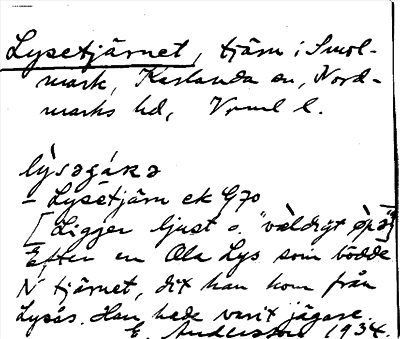 Lysetjärnet, tjärn i Smol-
mark, Karlanda sn, Nord-
marks hd, Vrml l.
lỳsəgára
– Lysetjärn ek G70
[Ligger ljust o. "väldigt öpə"]
Efter en Ola Lys som bodde
N tjärnet, dit han kom från
Lysås. Han hade varit jägare.
E. Andersson 1934.